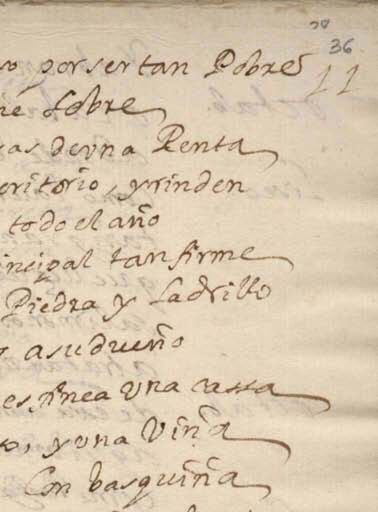 36
11
por ser tan Pobre
sobre
cas de vna Renta
critorio, y rinden
todo el año
incipal tan firme
Piedra y Ladrillo
a su dueño
es, si nca vna cassa
to, y vna Viña
Con basquiña